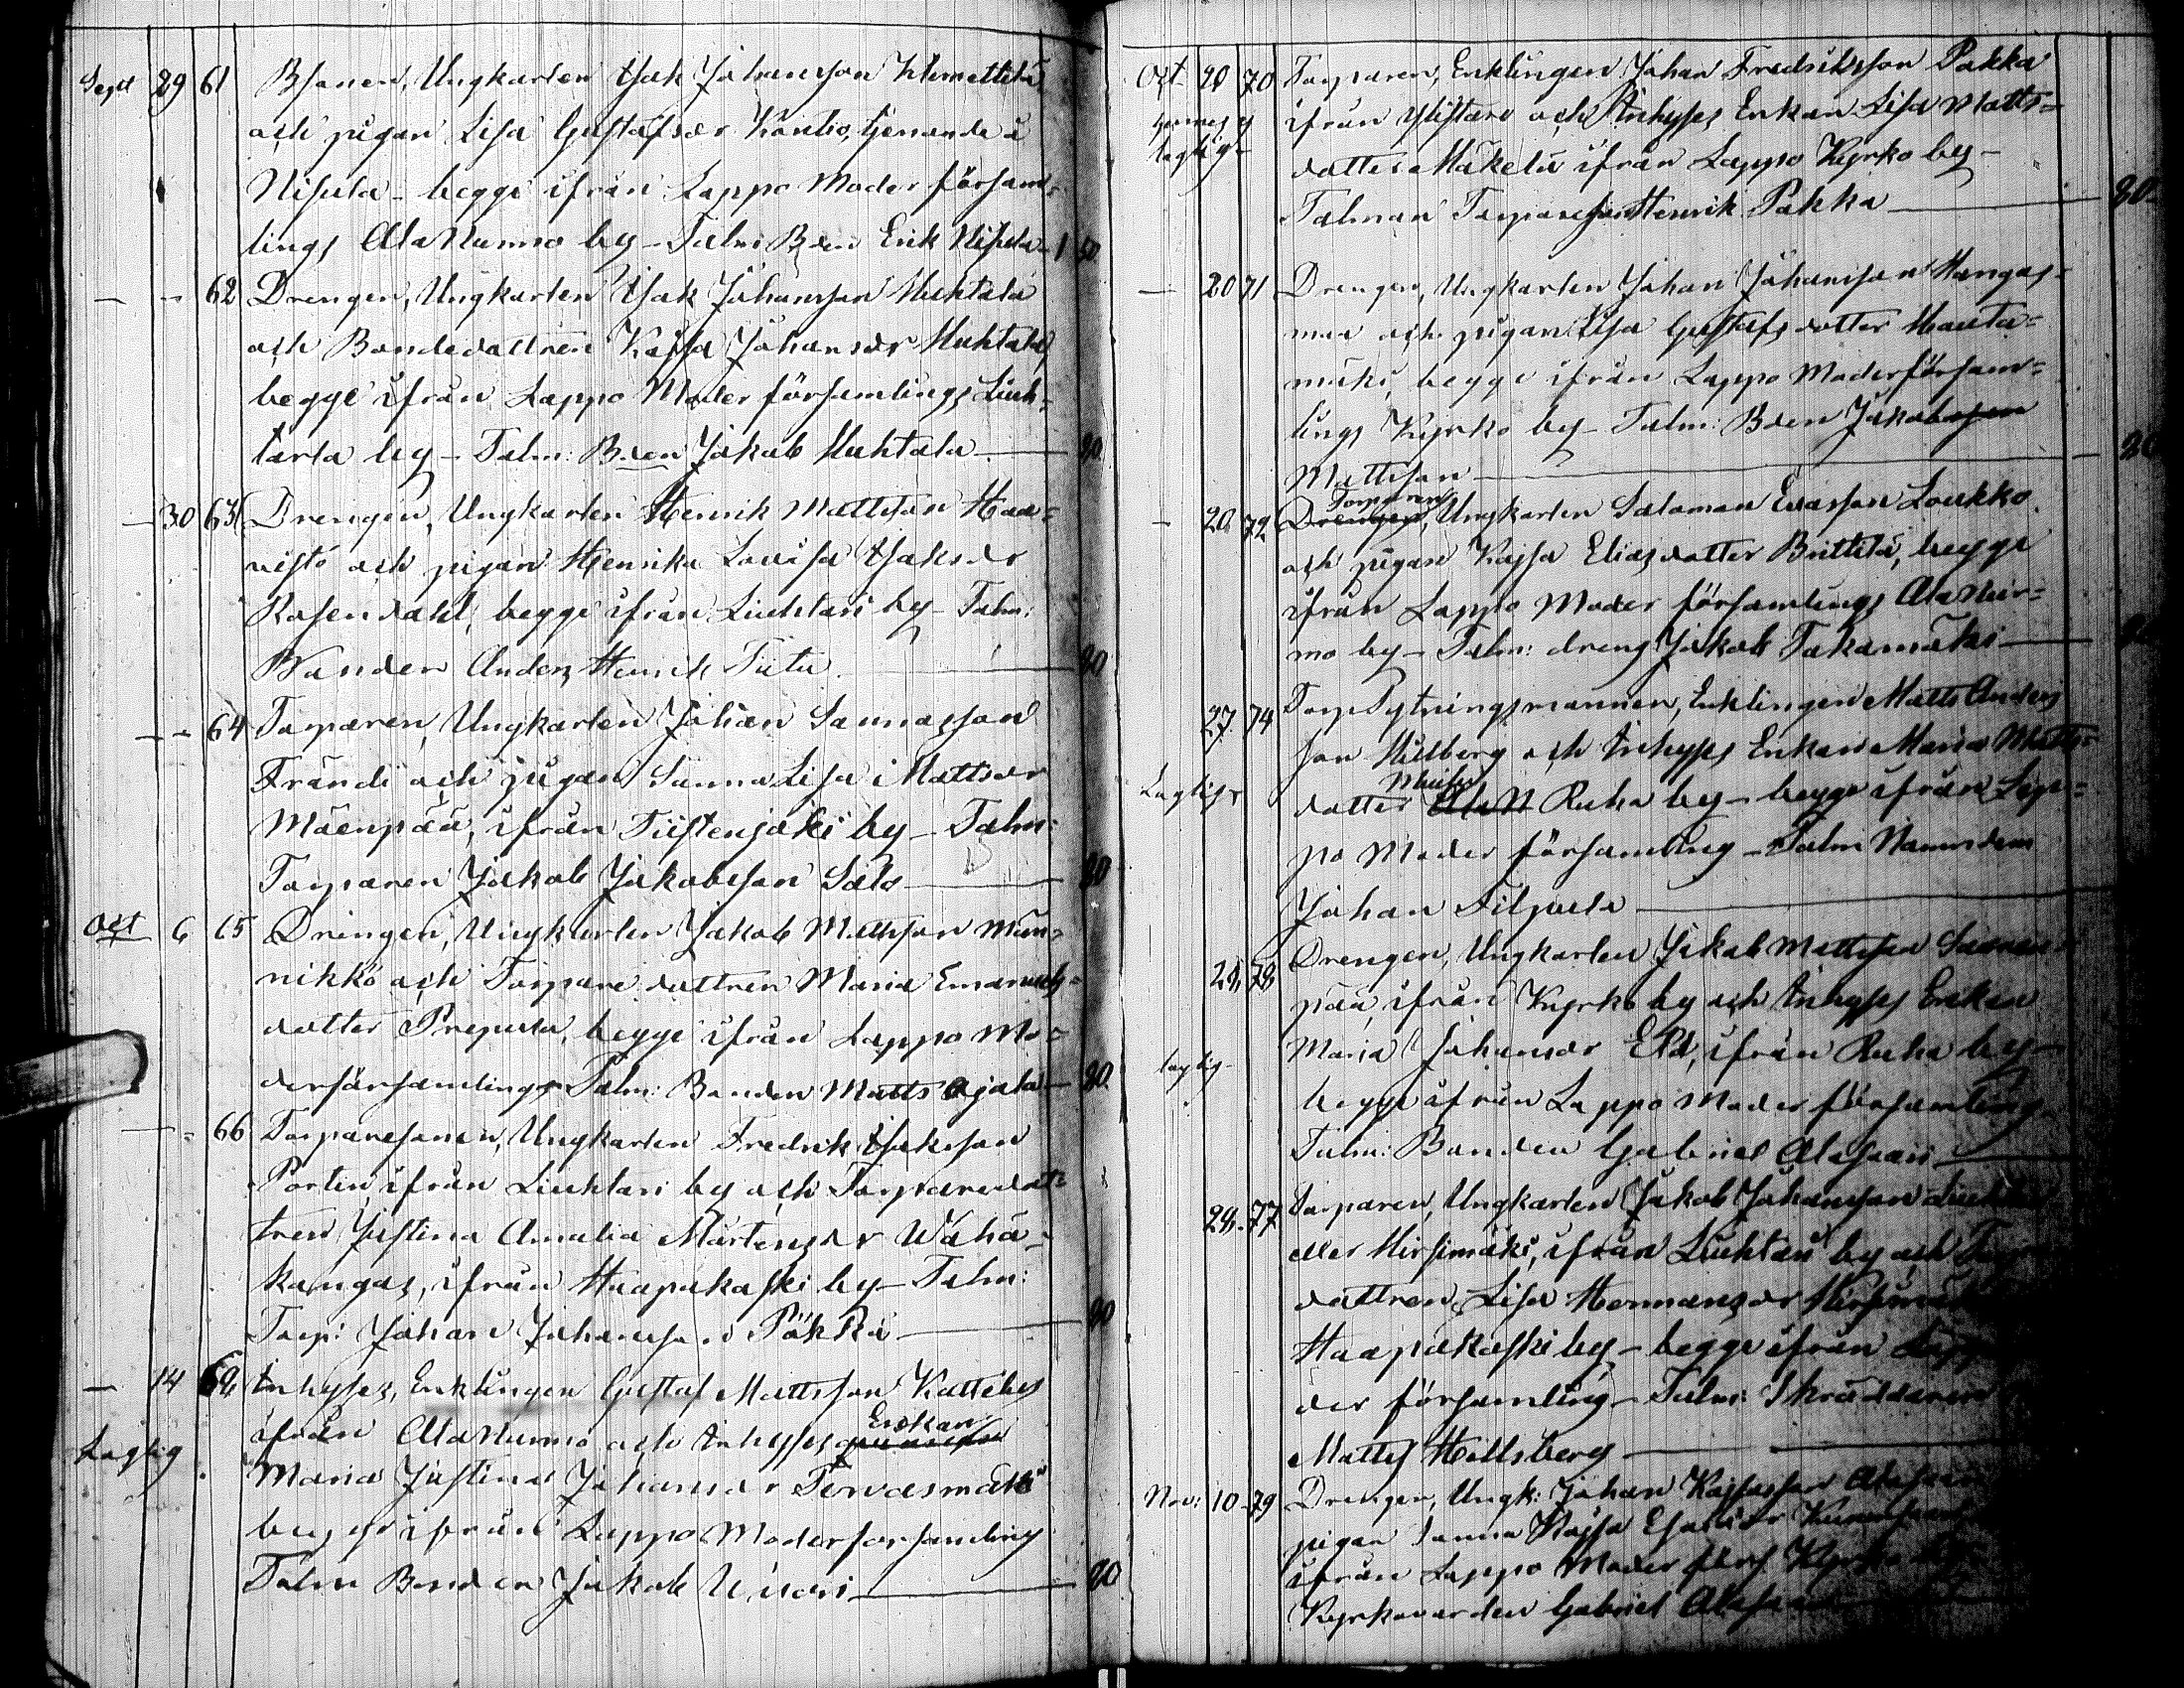 Sept 29 61 Bsonen, Ungkarlen Isak Johansson Klemettilä
och pigan Lisa Gustafsdr Kontio, tjenande å
Nisula - begge ifrån Lappo Moder försam=
lings AlaNurmo by - Talm: Bden Erik Nisula - 1 50
— - 62 Drengen, Ungkarlen Isak Johansson Huhtala
och Bondedottren Kajsa Johansdr Huhtala,
begge ifrån Lappo Moder församlings Liuh=
tarla by - Talm: Bden Jakob Huhtala — 80.
— 30 63 Drengen, Ungkarlen Henrik Mattsson Haa=
visto och pigan Henrika Lovisa Isaksdr
Rosendahl, begge ifrån Liuhtari by - Talm:
Bonden Anders Henrik Tiitu — 80
— - 64 Torparen, Ungkarlen Johan Sannasson
Frändi och pigan Sanna Lisa Mattsdr
Mäenpää, ifrån Tiistenjoki by - Talm:
Torparen Jakob Jakobsson Salo — 80
Oct 6 65 Drengen, Ungkarlen Jakob Mattsson Män=
nikkö och Torpare dottren Maria Emanuels=
dotter Prepula, begge ifrån Lappo Mo=
derförsamlings Talm: Bonden Matts Ojala — 80.
— - 66 Torparesonen, Ungkarlen Fredrik Isaksson
Porten ifrån Liuhtari by och Torparedot=
tren Justina Amalia Mårtensdr Wäha=
kangas, ifrån Haapakoski by - Talm:
Torp: Johan Johansson Pökkä — 80
— 14 Inhyses, Enklingen Gustaf Mattsson Kattelus
ifrån AlaNurmo och Inhyses Enkan
Laglig
Maria Justina Johansdr Tervasmäki
begge ifrån Lappo Moderförsamling
Talm Bonden Jakob — 80
Oct 20 70 Torparen, Enklingen Johan Fredriksson Pokka
ifrån Ylistaro och Inhyses Enkan Lisa Matts=
laglig -
dotter Mäkelä ifrån Lappo Kyrko by -
Talman Torparesonen Henrik Pokka — 80
— 20 71 Drengen, Ungkarlen Johan Johansson Hangas=
maa och pigan Lisa Gustafs dotter Hauta=
mäki, begge ifrån Lappo Moderförsam=
lings Kyrko by - Talm: Bden Jakobsson
Mattsson — 80
— 20 72 Torparen
Drengen, Ungkarlen Salomon Evasson Loukko
och pigan Kajsa Eliasdotter Brittilä, begge
ifrån Lappo Moder församlings AlaNur=
mo by - Talm: dreng Jakob Takamäki —
27. 74 Torp Sytningsmannen, Enklingen Matts Anders
son Hilberg och Inhyses Enkan Maria Matts=
Laglig
dotter Ruha by - begge ifrån Lap=
po Moder församling - Talm Nämndem
Johan Filpula —
28. Drengen, Ungkarlen Jakob Mattsson
pää, ifrån Kyrko by och Inhyses Enkan
Maria Johansdr Eld, ifrån Ruha by -
laglig -
begge ifrån Lappo Moder församling
Talm: Bonden Gabriel Alasaari —
28. 77 Torparen, Ungkarlen Jakob Johansson
eller Hirsimäki, ifrån Liuhtari by och
dottren Lisa Hermansdr
Haapakoski by - begge ifrån
der församling - Talm: Skräddaren
Matts Hellsberg —
Nov: 10 79 Drengen, Ungk: Johan Kajsasson
pigan Sanna Kajsa
ifrån Lappo Moder förs Kyrko
Kyrkovärden Gabriel